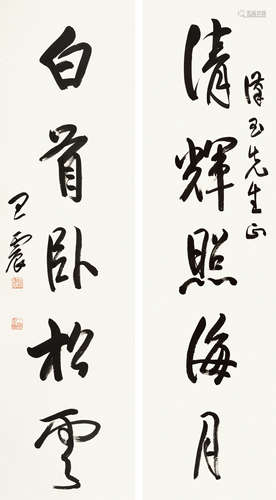 清輝照海月
漢玉先生正
白首卧松雲
王震